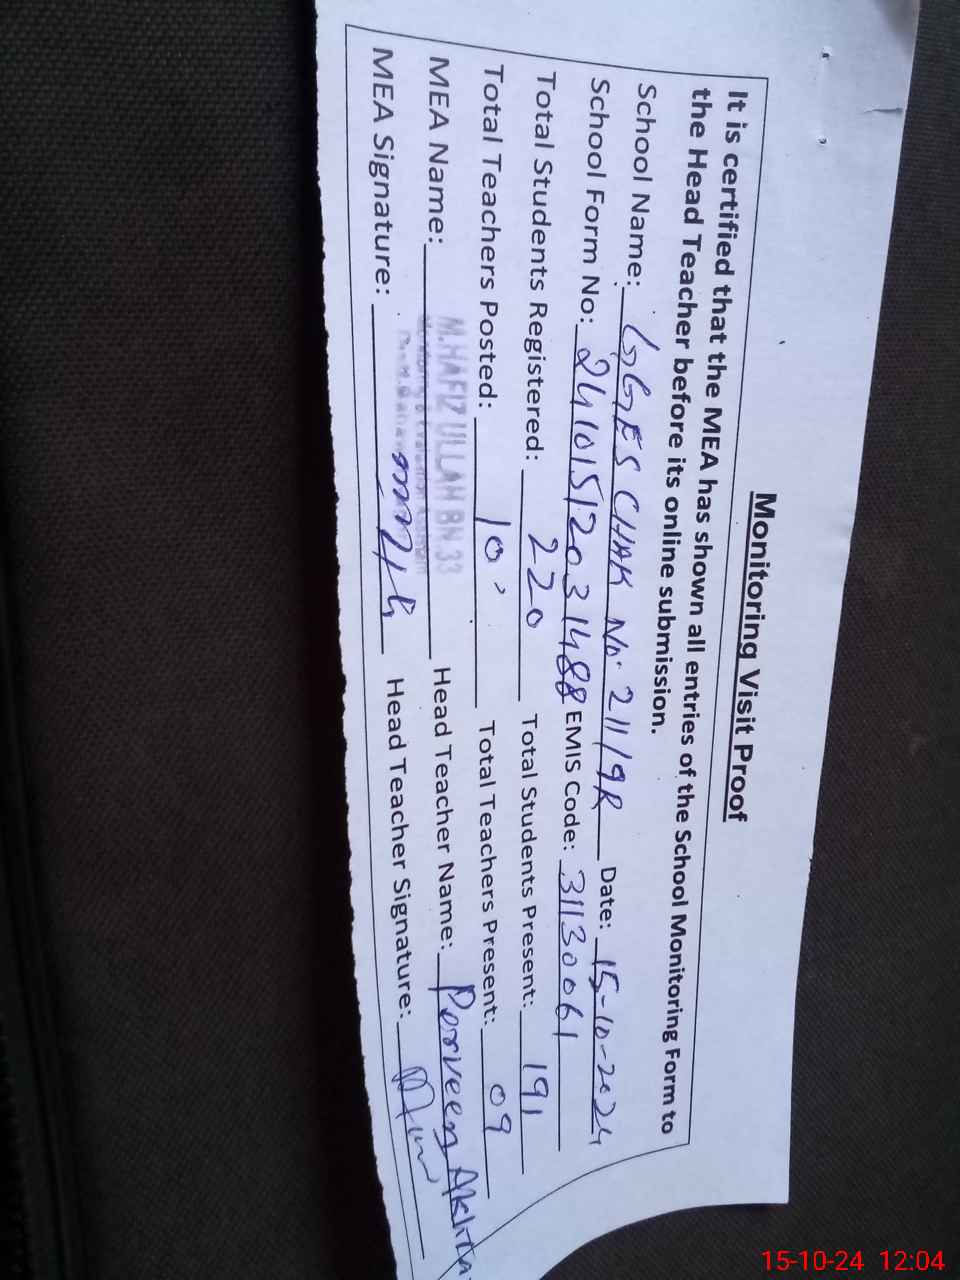 Monitoring Visit Proof
It is certified that the MEA has shown all entries of the School Monitoring Form to
the Head Teacher before its online submission.
School Name: GGES CHAK No. 211/9R Date: 15-10-2024
School Form No: 2410151203 1488 EMIS Code: 31130061
Total Students Registered: 220 Total Students Present: 191
Total Teachers Posted: 10 Total Teachers Present: 09
MEA Name: M.HAFIZ ULLAH BN.33 Head Teacher Name: Perveen Akhtar
Monitoring & Evaluation
MEA Signature: Head Teacher Signature:
15-10-24 12:04